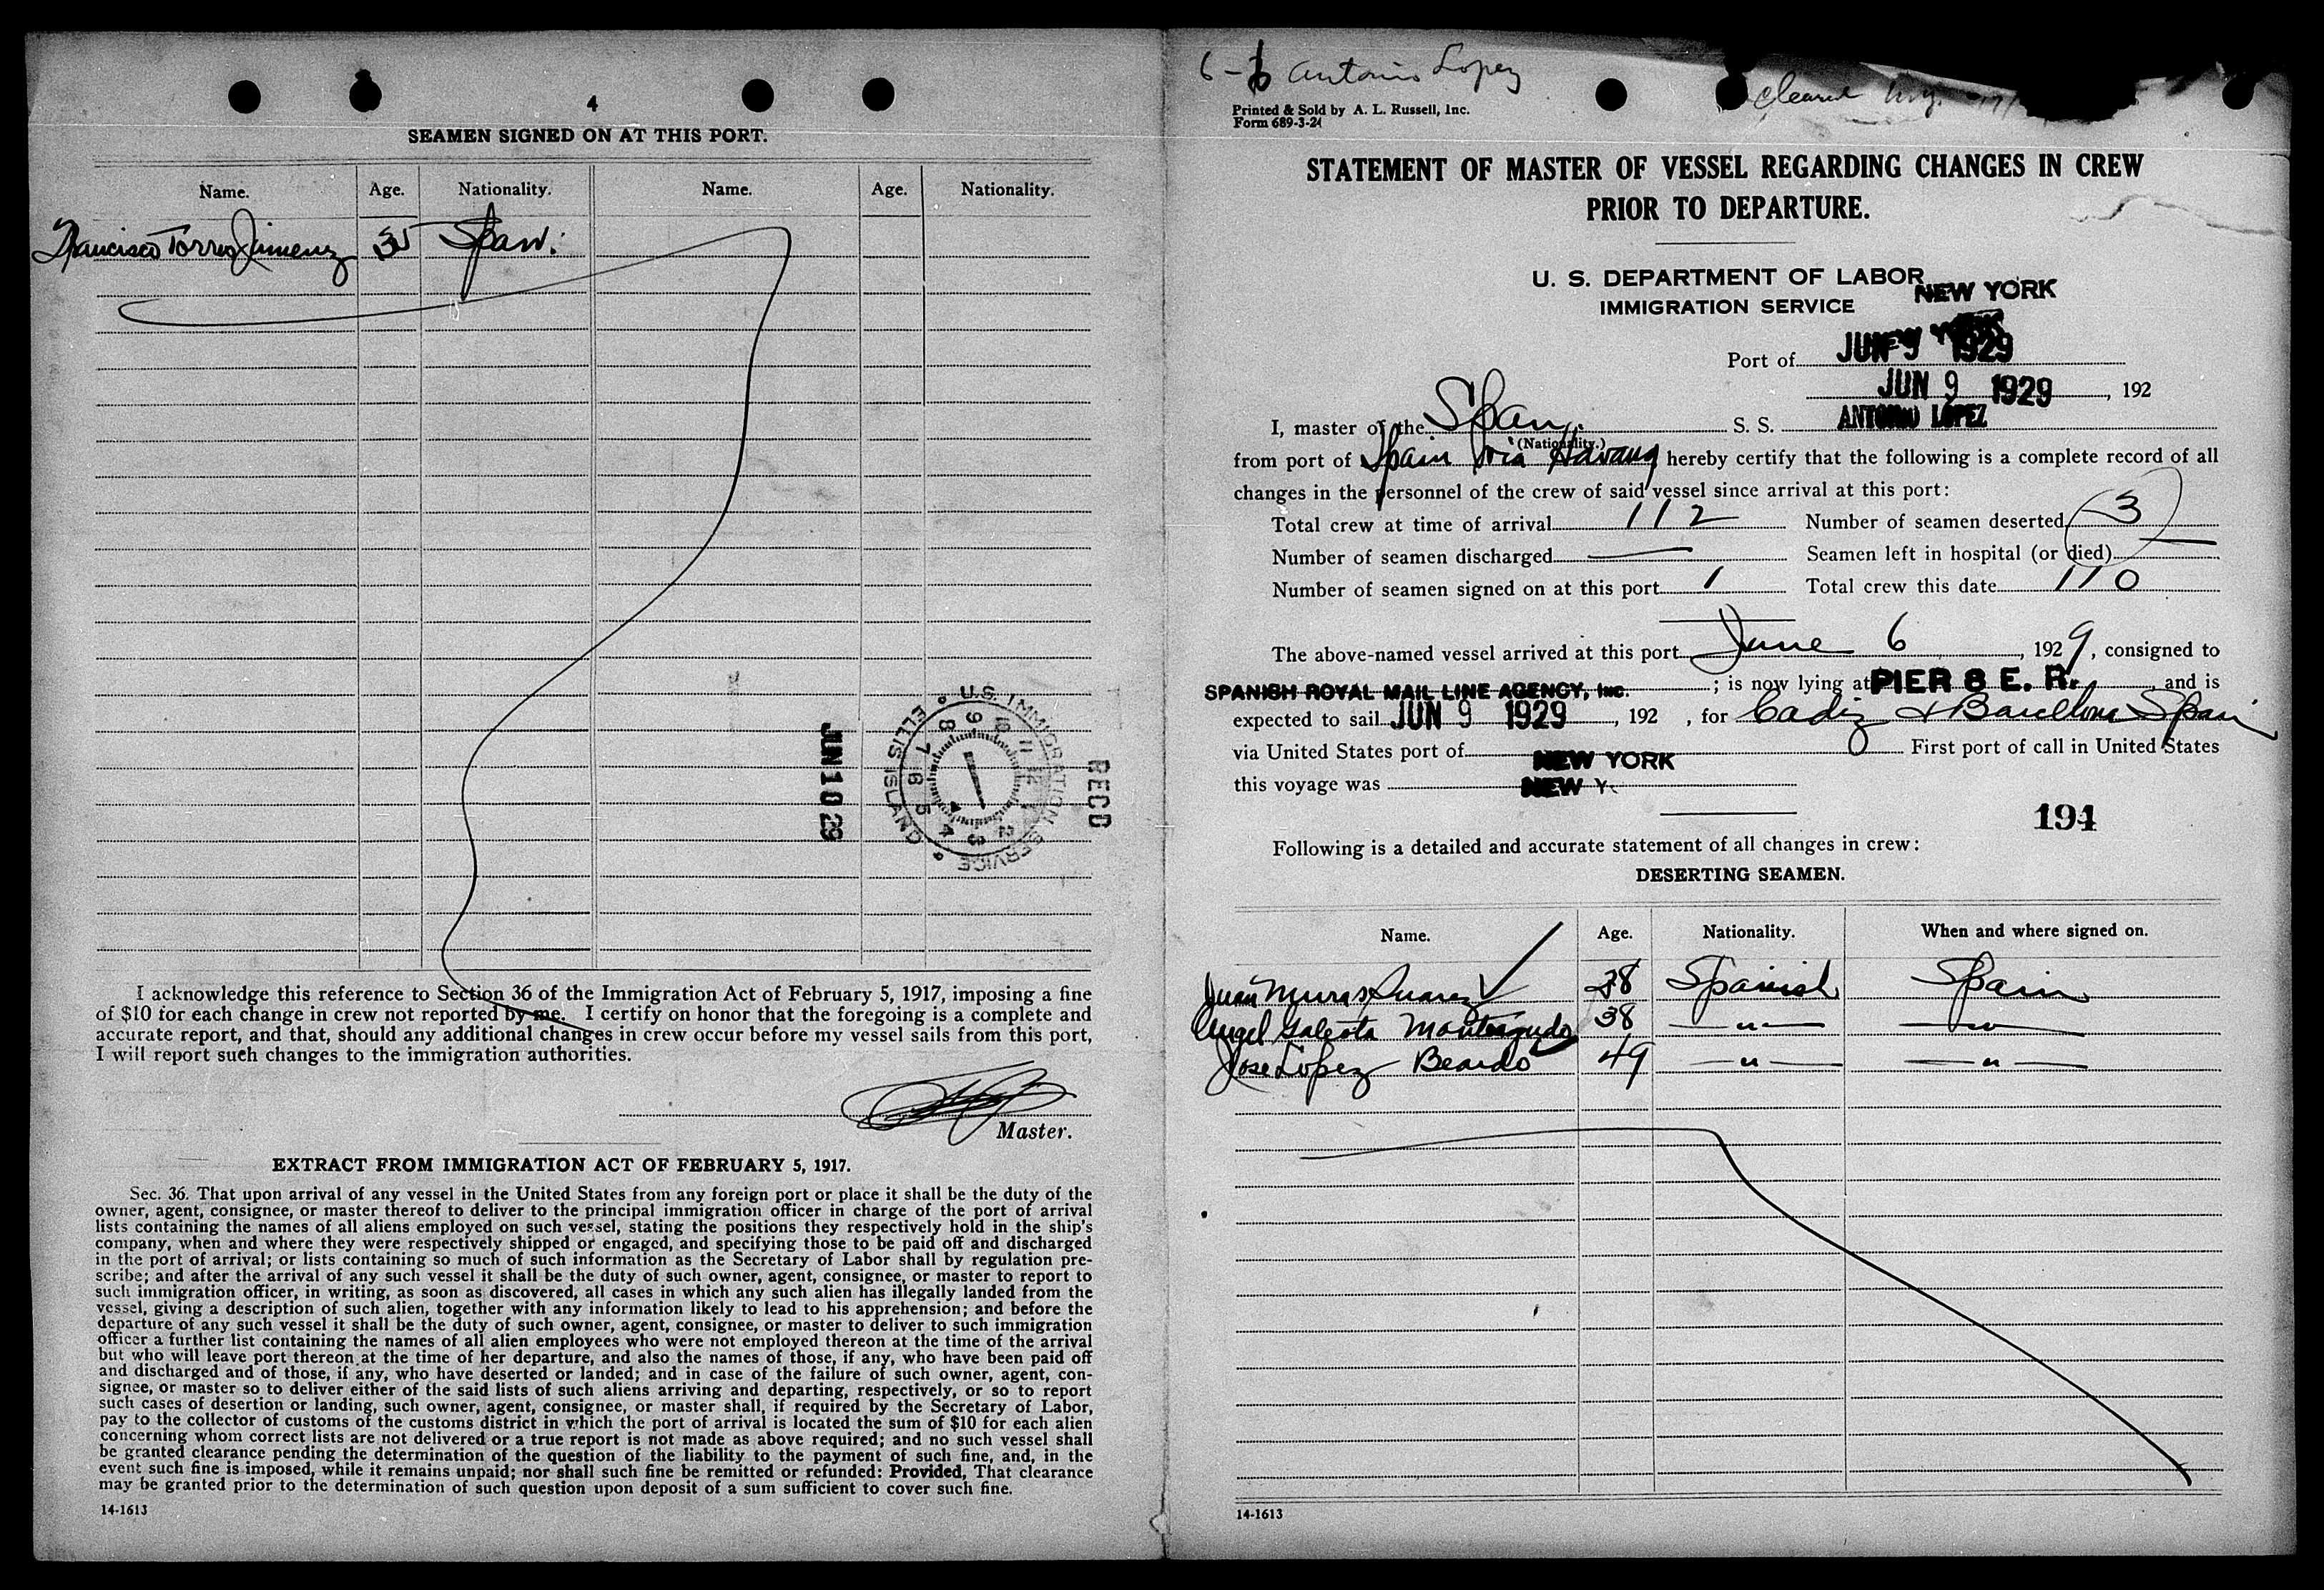 4
SEAMEN SIGNED ON AT THIS PORT.
Name. Age. Nationality. Name. Age. Nationality.
Francisco Torres Jimenez 35 Span.
JUN 10 29
RECD
U.S. IMMIGRATION SERVICE • ELLIS ISLAND •
I acknowledge this reference to Section 36 of the Immigration Act of February 5, 1917, imposing a fine
of $10 for each change in crew not reported by me. I certify on honor that the foregoing is a complete and
accurate report, and that, should any additional changes in crew occur before my vessel sails from this port,
I will report such changes to the immigration authorities.
Master.
EXTRACT FROM IMMIGRATION ACT OF FEBRUARY 5, 1917.
Sec. 36. That upon arrival of any vessel in the United States from any foreign port or place it shall be the duty of the
owner, agent, consignee, or master thereof to deliver to the principal immigration officer in charge of the port of arrival
lists containing the names of all aliens employed on such vessel, stating the positions they respectively hold in the ship's
company, when and where they were respectively shipped or engaged, and specifying those to be paid off and discharged
in the port of arrival; or lists containing so much of such information as the Secretary of Labor shall by regulation pre-
scribe; and after the arrival of any such vessel it shall be the duty of such owner, agent, consignee, or master to report to
such immigration officer, in writing, as soon as discovered, all cases in which any such alien has illegally landed from the
vessel, giving a description of such alien, together with any information likely to lead to his apprehension; and before the
departure of any such vessel it shall be the duty of such owner, agent, consignee, or master to deliver to such immigration
officer a further list containing the names of all alien employees who were not employed thereon at the time of the arrival
but who will leave port thereon at the time of her departure, and also the names of those, if any, who have been paid off
and discharged and of those, if any, who have deserted or landed; and in case of the failure of such owner, agent, con-
signee, or master so to deliver either of the said lists of such aliens arriving and departing, respectively, or so to report
such cases of desertion or landing, such owner, agent, consignee, or master shall, if required by the Secretary of Labor,
pay to the collector of customs of the customs district in which the port of arrival is located the sum of $10 for each alien
concerning whom correct lists are not delivered or a true report is not made as above required; and no such vessel shall
be granted clearance pending the determination of the question of the liability to the payment of such fine, and, in the
event such fine is imposed, while it remains unpaid; nor shall such fine be remitted or refunded: Provided, That clearance
may be granted prior to the determination of such question upon deposit of a sum sufficient to cover such fine.
14-1613
6-6 Antonio Lopez
Cleared
Printed & Sold by A. L. Russell, Inc.
Form 689-3-24
STATEMENT OF MASTER OF VESSEL REGARDING CHANGES IN CREW
PRIOR TO DEPARTURE.
U. S. DEPARTMENT OF LABOR
IMMIGRATION SERVICE
NEW YORK
Port of JUN 9 1929
JUN 9 1929, 192
I, master of the Span. S. S. ANTONIO LOPEZ
(Nationality.)
from port of Spain via Havana hereby certify that the following is a complete record of all
changes in the personnel of the crew of said vessel since arrival at this port:
Total crew at time of arrival 112 Number of seamen deserted 3
Number of seamen discharged — Seamen left in hospital (or died) —
Number of seamen signed on at this port 1 Total crew this date 110
The above-named vessel arrived at this port June 6, 1929, consigned to
SPANISH ROYAL MAIL LINE AGENCY, Inc. ; is now lying at PIER 8 E. R. and is
expected to sail JUN 9 1929, 192 , for Cadiz & Barcelona Spain
via United States port of NEW YORK First port of call in United States
this voyage was NEW Y
194
Following is a detailed and accurate statement of all changes in crew:
DESERTING SEAMEN.
Name. Age. Nationality. When and where signed on.
Juan Muras Suarez 28 Spanish Spain
Angel Galeota Monteagudo 38 — " — — " —
Jose Lopez Beardo 49 — " — — " —
14-1613